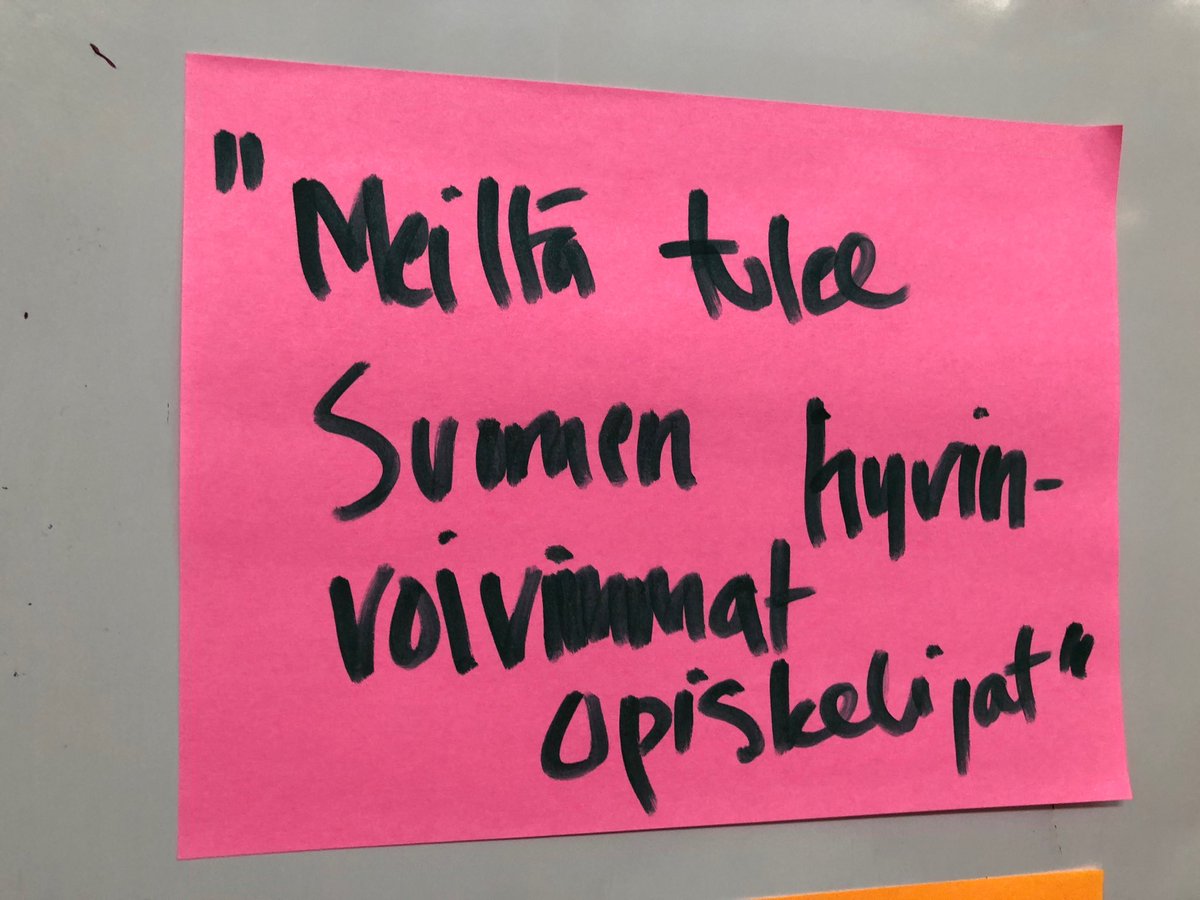 "Meiltä tulee
Suomen hyvin-
voivimmat
opiskelijat"